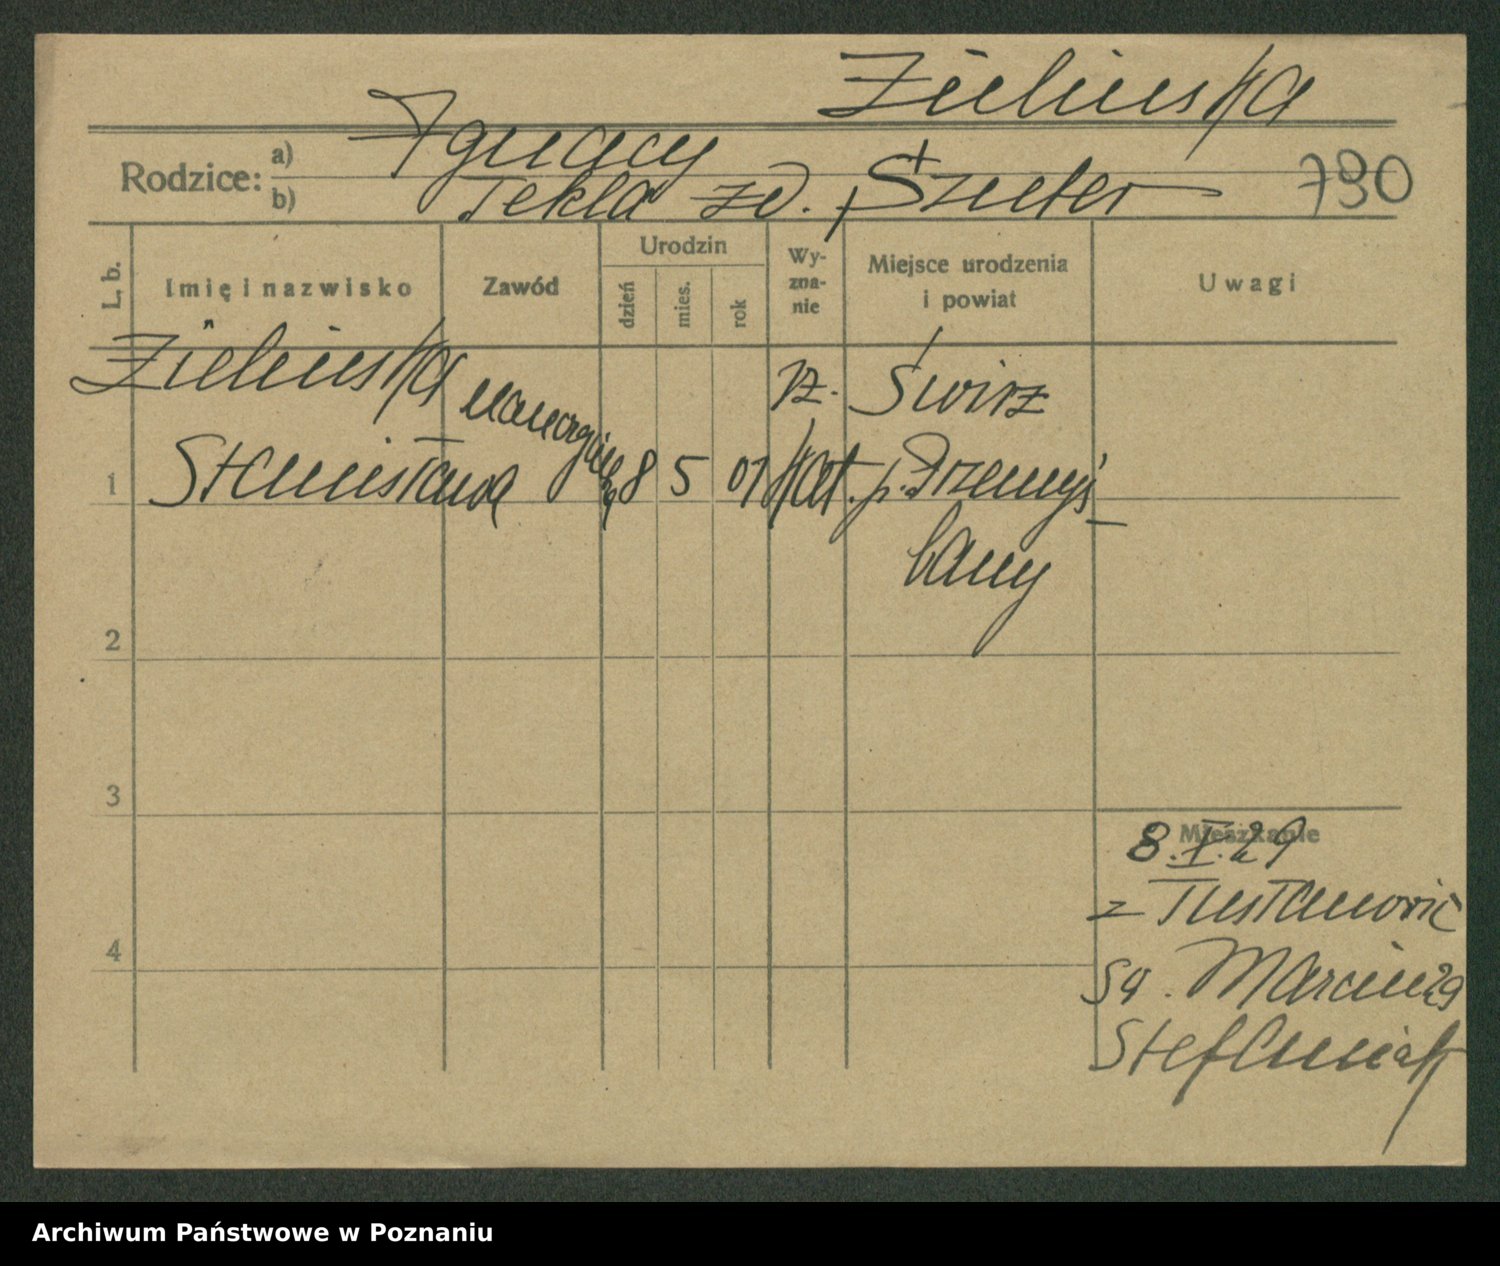 Zielinska
Rodzice: a) Ignacy
b) Tekla zd. Szueter
790
L. b.
Imię i nazwisko
Zawód
Urodzin
dzień
mies.
rok
Wy-
zna-
nie
Miejsce urodzenia
i powiat
Uwagi
Zielinska
Stanisława
1
8 5 01
rz.
kat.
Świrz
p. Przemyś-
lany
2
3
4
Mieszkanie
8.I.29
z Tustanowic
Św. Marcin 29
Stefaniak
Archiwum Państwowe w Poznaniu